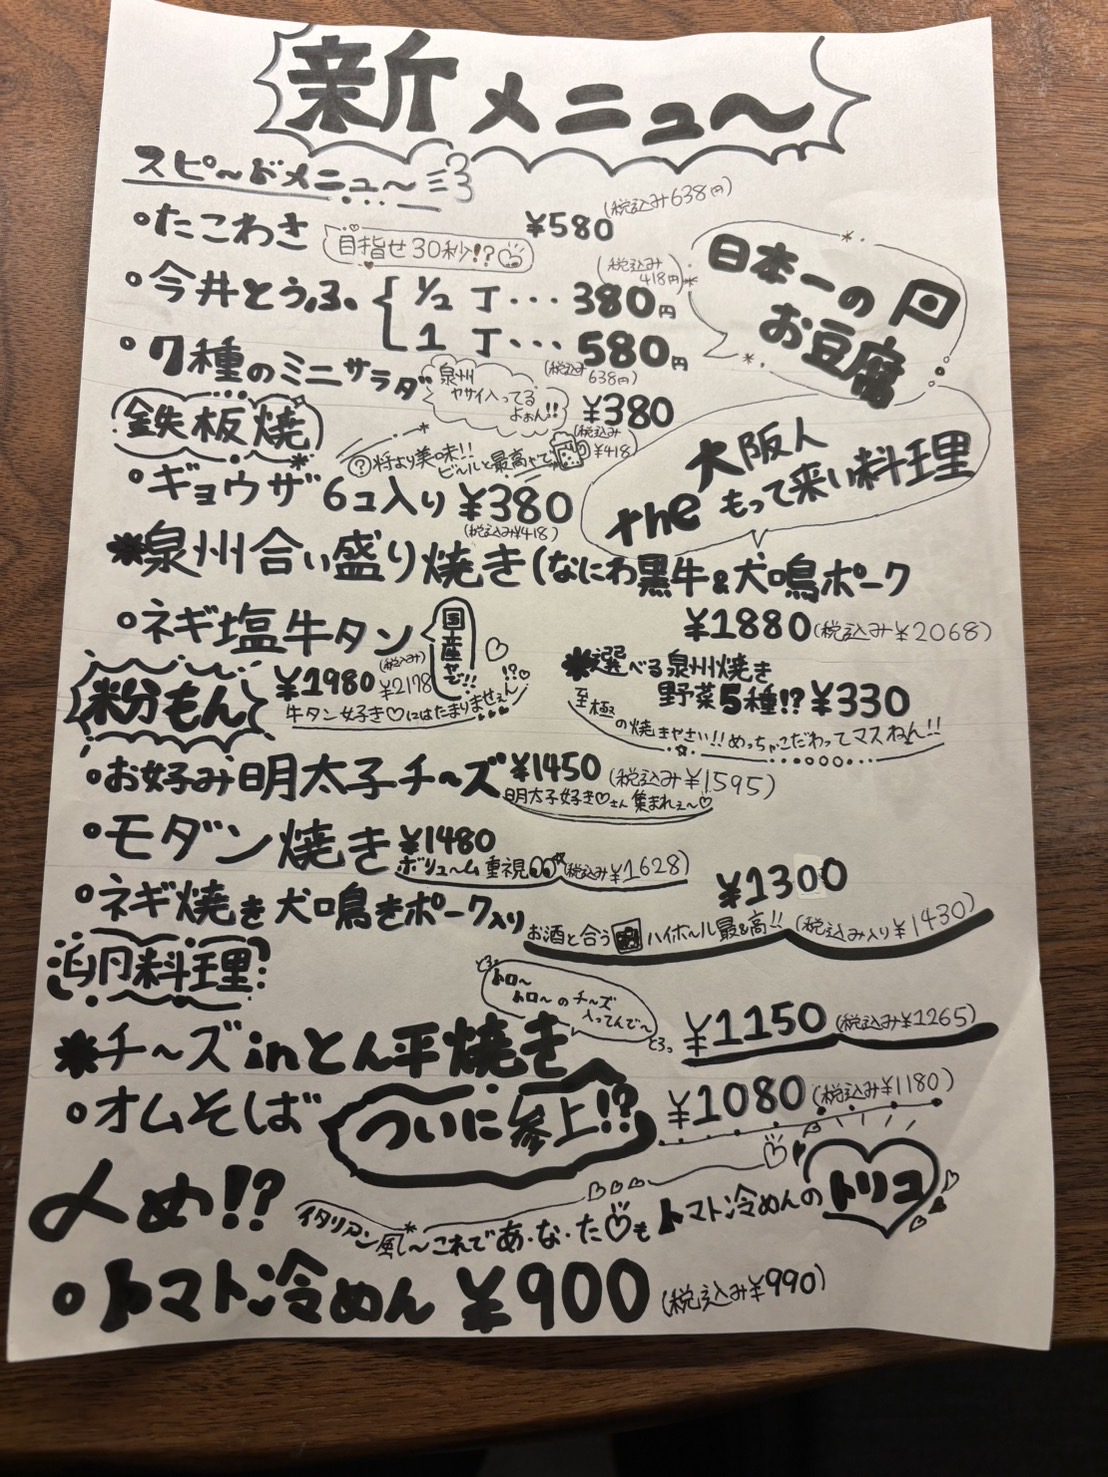 新メニュ〜
スピ〜ドメニュ〜
°たこわさ
目指せ30秒!?
¥580
(税込み638円)
°今井とうふ
½丁…380円
(税込み418円)
1丁…580円
(税込み638円)
日本一の
お豆腐
°7種のミニサラダ
泉州
ヤサイ入ってる
よぉん!!
¥380
(税込み¥418)
鉄板焼
?将より美味!!
ビ〜ルと最高ャで
°ギョウザ 6コ入り ¥380
(税込み¥418)
大阪人
the もって来い料理
*泉州合い盛り焼き(なにわ黒牛&犬鳴ポ〜ク
¥1880(税込み¥2068)
°ネギ塩牛タン
国産やで!!
¥1980
(税込み)
¥2178
牛タン好き♡にはたまりませぇん!?♡
*選べる泉州焼き
野菜5種!?¥330
至極の焼きやさい!!めっちゃこだわってマスねん!!
粉もん
°お好み明太子チ〜ズ ¥1450(税込み¥1595)
明太子好き♡さん集まれぇ〜♡
°モダン焼き ¥1480
ボリュ〜ム重視(税込み¥1628)
°ネギ焼き犬鳴きポ〜ク入り
¥1300
お酒と合う ハイボ〜ル最&高!! (税込み入り¥1430)
卵料理
とろっ
トロ〜
トロ〜のチ〜ズ
入ってんで〜
とろっ
*チ〜ズinとん平焼き
¥1150(税込み¥1265)
°オムそば
ついに参上!?
¥1080(税込み¥1180)
〆め!?
イタリアン風〜これであ・な・た♡もトマト冷めんのトリコ
°トマト冷めん ¥900(税込み¥990)